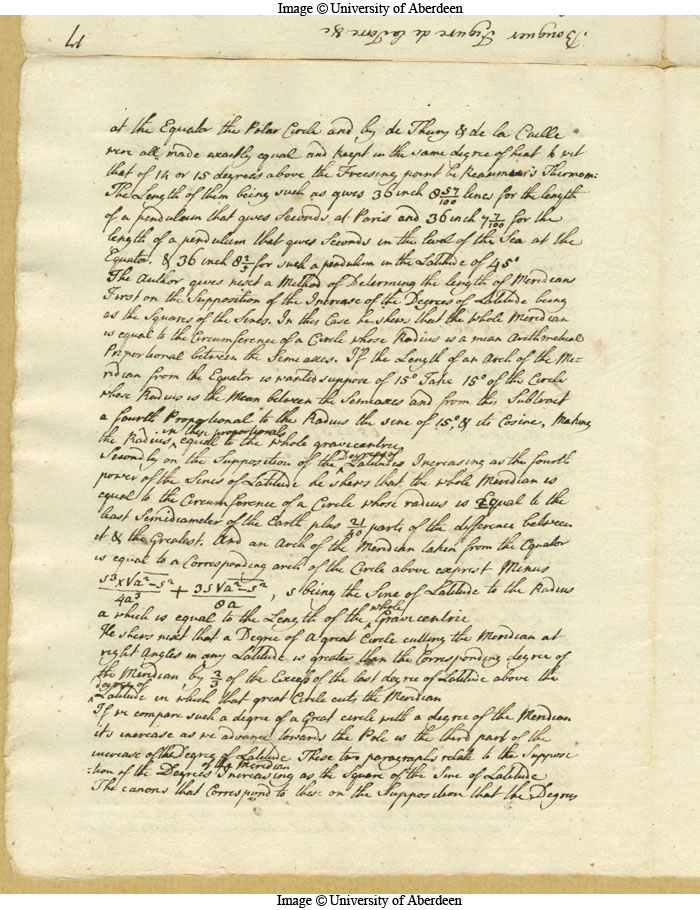 Image © University of Aberdeen
17
Bouguer Figure de la Terre &c
at the Equator the Polar Circle and by de Thury & de la Caille
were all made exactly equal and kept in the same degree of heat to wit
that of 14 or 15 degrees above the Freesing point be Reaumurs Thermom:
The Length of them being such as gives 36 inch 8 57/100 lines for the length
of a pendulum that gives Seconds at Paris and 36 inch 7 7/100 for the
length of a pendulum that gives Seconds in the level of the Sea at the
Equator. & 36 inch 8 2/3 for such a pendulum in the Latitude of 45°
The Author gives next a Method of Determing the length of Meridians
First on the Supposition of the Increase of the Degrees of Latitude being
as the Squares of the Sines. In this Case he shews that the whole Meridian
is equal to the Circumference of a Circle whose Radius is a mean Arithmetical
Proportional between the Semeaxes. If the Length of an Arch of the Me=
ridian from the Equator is wanted suppose of 15° Take 15° of the Circle
whose Radius is the Mean between the Semiaxes and from this Subtract
a fourth Proportional to the Radius the sine of 15°, & its Cosine, Making
the Radius in these proportionals equal to the whole gravicentric
Secondly on the Supposition of the Degrees of Latitudes Increasing as the fourth
power of the Sines of Latitude he shews that the whole Meridian is
equal to the Circumference of a Circle whose radius is Equal to the
least Semidiameter of the Earth plus 21/40 parts of the difference between
it & the Greatest. And an Arch of the Meridian taken from the Equator
is equal to a Corresponding arch of the Circle above exprest Minus
s³×√a²-s²/4a³ + 3s√a²-s²/8a, s being the Sine of Latitude to the Radius
a which is equal to the Length of the whole Gravicentric
He shews next that a Degree of a great Circle cutting the Meridian at
right Angles in any Latitude is greater than the Corresponding degree of
the Meridian by 2/3 of the Excess of the last degree of Latitude above the
degree of Latitude in which that great Circle cuts the Meridian
If we compare such a degree of a Great circle with a degree of the Meridian
its increase as we advance towards the Pole is the third part of the
increase of the Degree of Latitude These two paragraphs relate to the Suppose
:tion of the Degrees of the Meridian Increasing as the Square of the Sine of Latitude
The canons that Correspond to these on the Supposition that the Degrees
Image © University of Aberdeen